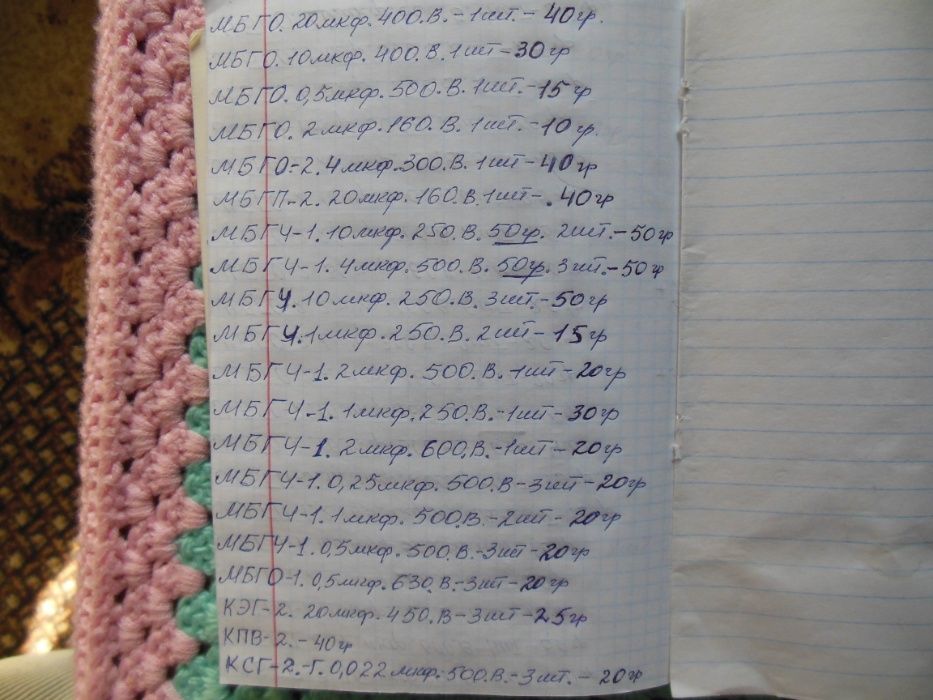 МБГО. 20мкф. 400.В.-1шт.-40гр.
МБГО. 10мкф. 400.В. 1шт-30гр
МБГО. 0,5мкф. 500.В. 1шт.-15гр
МБГО. 2мкф. 160.В. 1шт.-10гр.
МБГО-2. 4мкф. 300.В. 1шт-40гр
МБГП-2. 20мкф. 160.В. 1шт-.40гр
МБГЧ-1. 10мкф. 250.В. 50гр. 2шт.-50гр
МБГЧ-1. 4мкф. 500.В. 50гр. 3шт.-50гр
МБГЧ. 10мкф. 250.В. 3шт.-50гр
МБГЧ. 1мкф. 250.В. 2шт-15гр
МБГЧ-1. 2мкф. 500.В.-1шт-20гр
МБГЧ-1. 1мкф. 250.В.-1шт-30гр
МБГЧ-1. 2мкф. 600.В.-1шт-20гр
МБГЧ-1. 0,25мкф. 500.В-3шт-20гр
МБГЧ-1. 1мкф. 500.В.-2шт-20гр
МБГЧ-1. 0,5мкф. 500.В.-3шт-20гр
МБГО-1. 0,5мкф. 630.В-3шт-20гр
КЭГ-2. 20мкф. 450.В-3шт-25гр
КПВ-2.-40гр
КСГ-2.-Г. 0,022мкф. 500.В.-3шт.-20гр